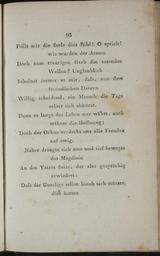 93
Füllt mir die Seele dies Bild! O sprich!
wie wurden der Armen
Doch zum traurigen Grab die tosenden
Wellen? Unglaublich
Scheinet immer es mir, daß, von dem
freundlichen Daseyn
Willig scheidend, ein Mensch die Tage
selber sich abkürzt.
Denn so lange das Leben nur währt, auch
währet die Hoffnung;
Doch der Orkus verdeckt uns alle Freuden
auf ewig.
Näher drängen sich nun und tief bewegt
das Mägdlein
An den Vaters Seite, der also gesprächig
erwiedert:
Daß die Unselige selbst hinab sich stürzte,
dieß hatten